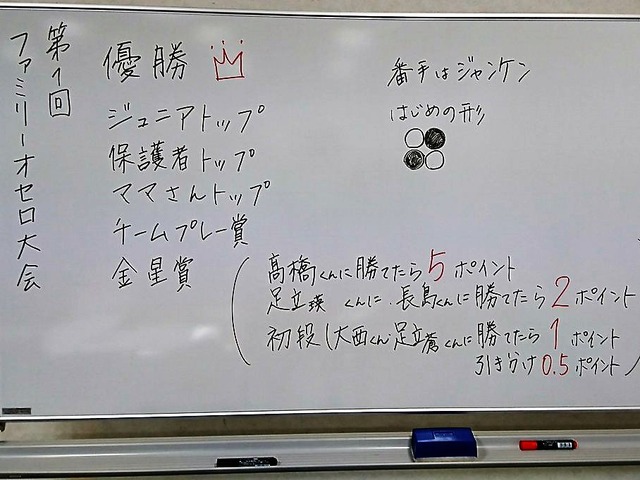 第1回
ファミリーオセロ大会
優勝
ジュニアトップ
保護者トップ
ママさんトップ
チームプレー賞
金星賞
番手はジャンケン
はじめの形
髙橋くんに勝てたら5ポイント
足立瑛くんに、長島くんに勝てたら2ポイント
初段(大西くん・足立篤くんに勝てたら1ポイント
引き分け0.5ポイント)